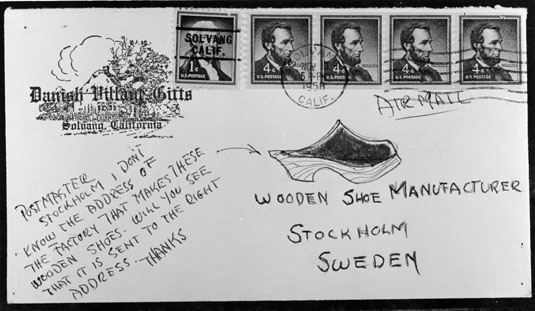 SOLVANG
CALIF.
1¢
U.S. POSTAGE
4¢
U.S. POSTAGE
4¢
U.S. POSTAGE
4¢
U.S. POSTAGE
4¢
U.S. POSTAGE
NOV
PM
1958
CALIF.
AIR MAIL
Danish Village Gifts
Solvang, California
POSTMASTER
STOCKHOLM I DON'T
KNOW THE ADDRESS OF
THE FACTORY THAT MAKES THESE
WOODEN SHOES. WILL YOU SEE
THAT IT IS SENT TO THE RIGHT
ADDRESS. THANKS
WOODEN SHOE MANUFACTURER
STOCKHOLM
SWEDEN